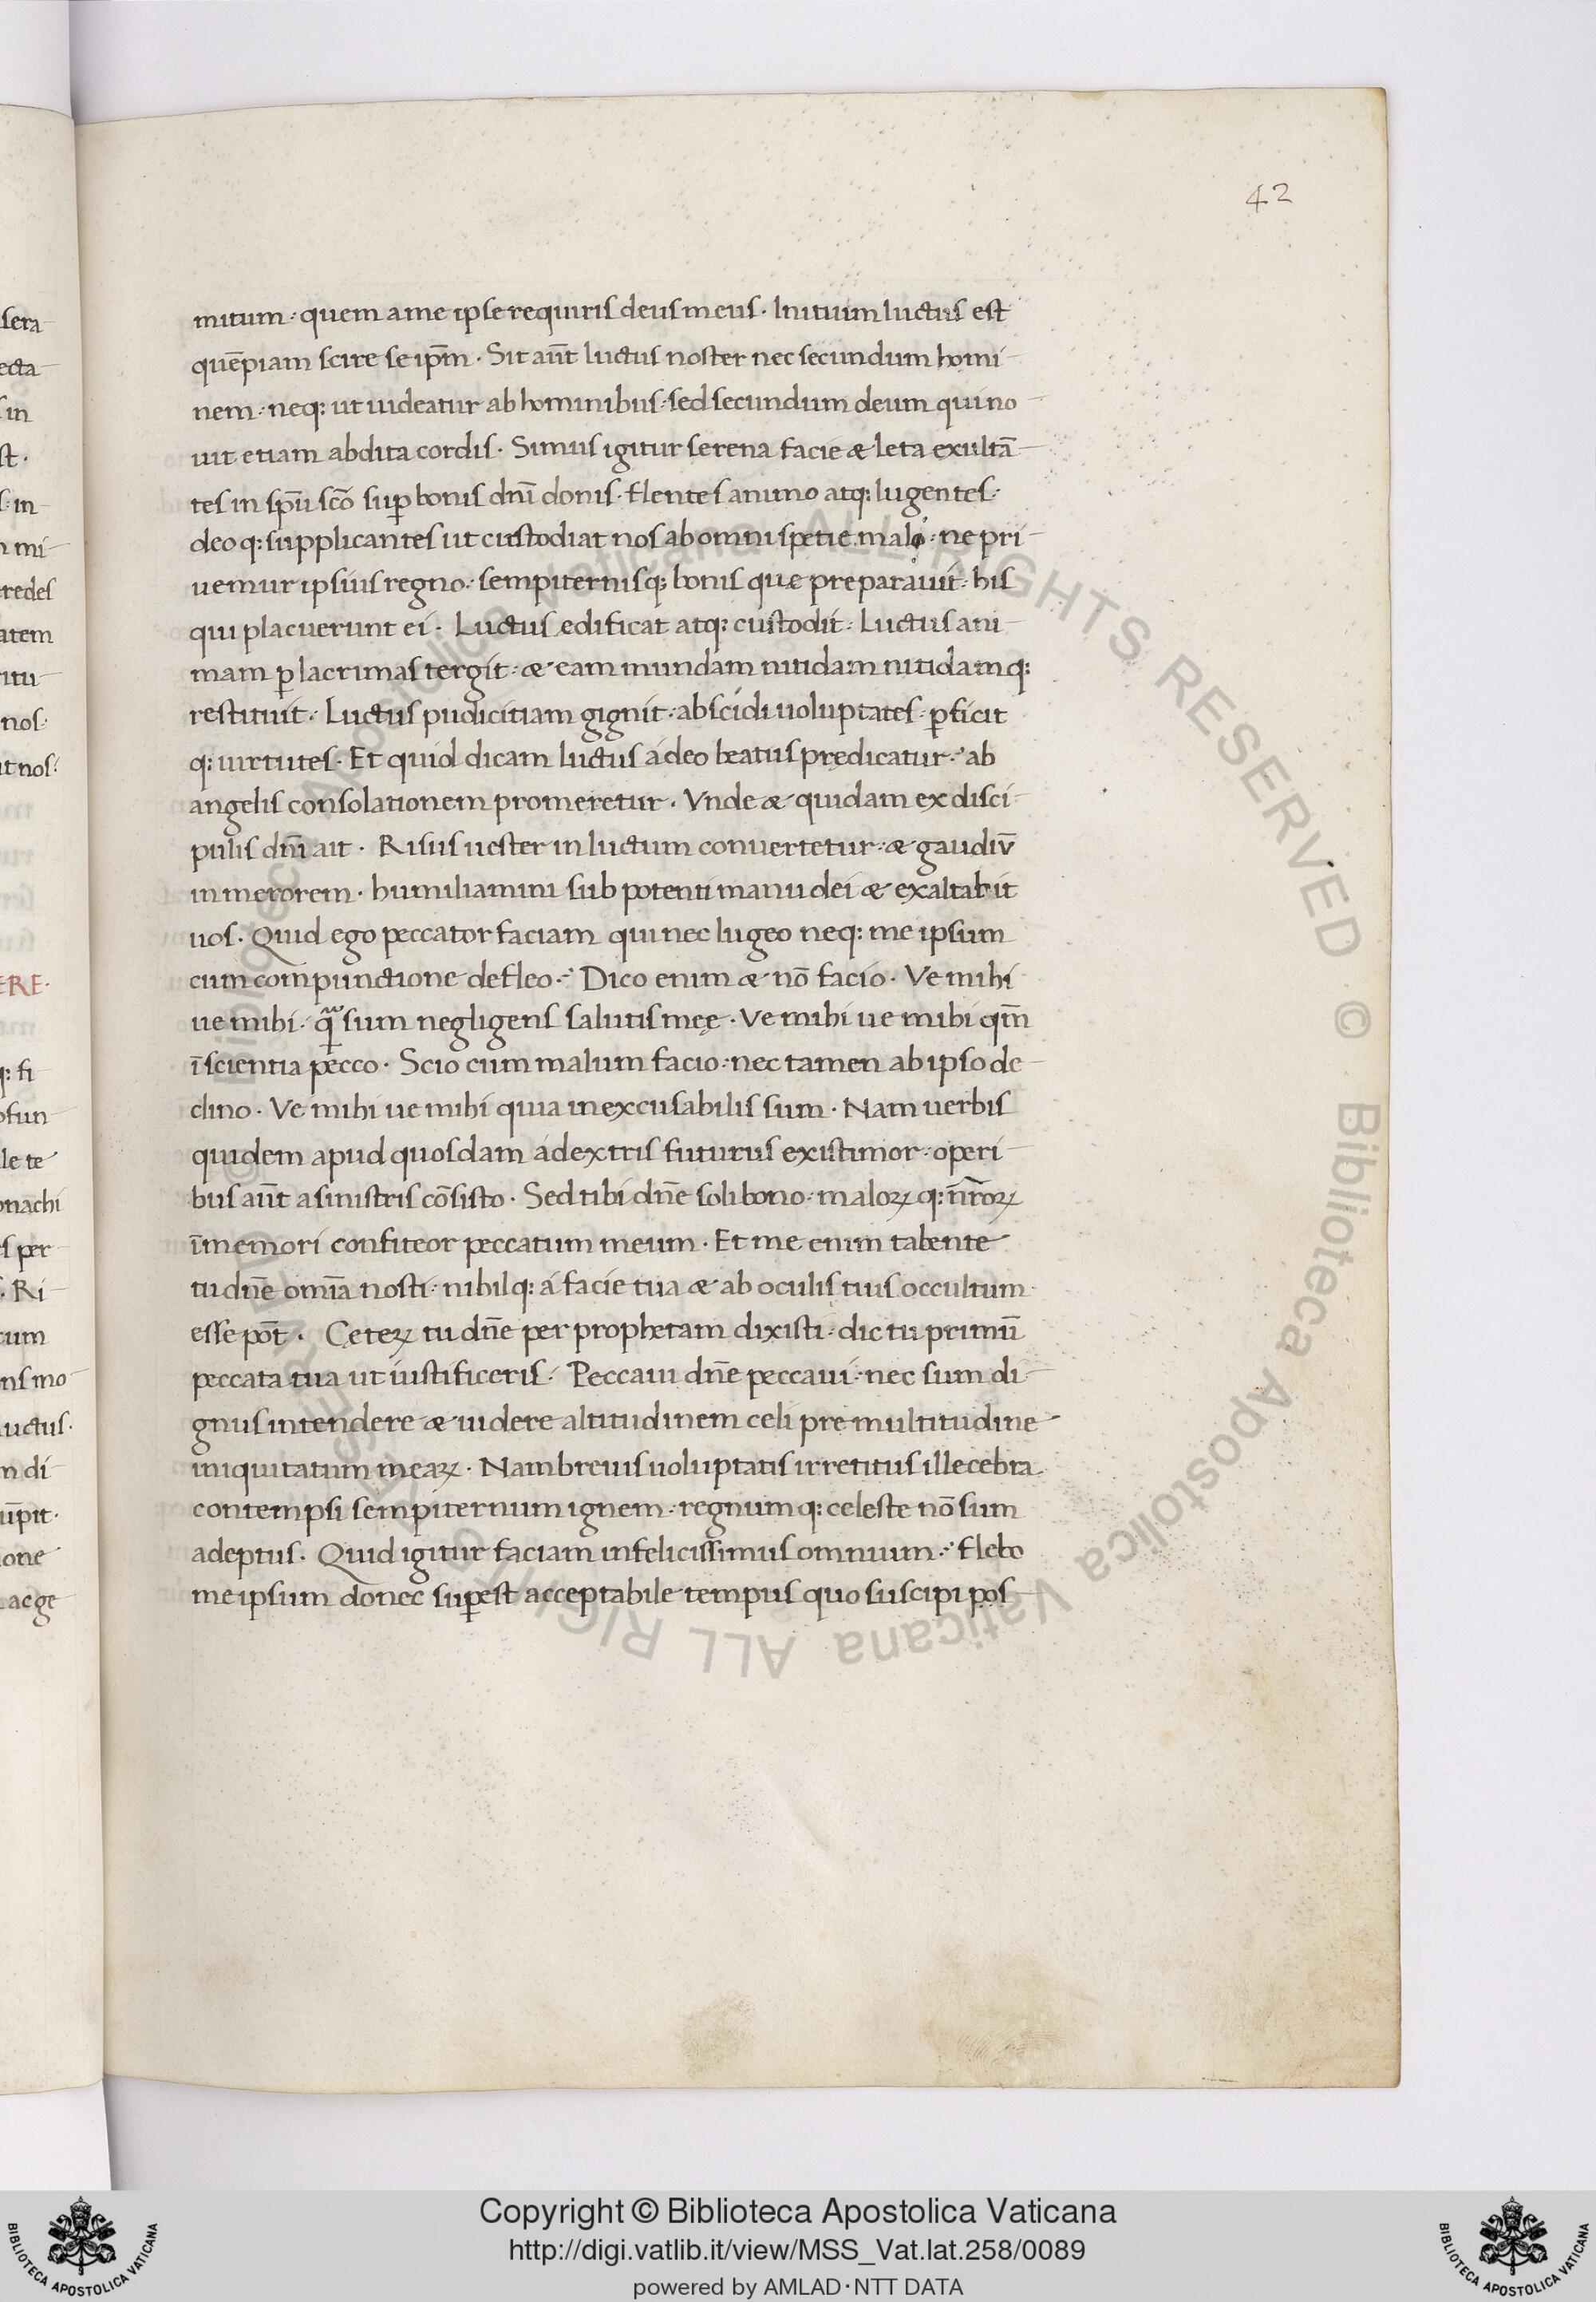 42
mitum · quem a me ipse requiris deus meus · Initium luctus est
quēpiam scire se ip̄m · Sit aūt luctus noster nec secundum homi
nem · neq: ut uideatur ab hominibus · sed secundum deum qui no
uit etiam abdita cordis · Simus igitur serena facie & leta exultā
tes in sp̄u scō suꝑ bonis dn̄i donis · flentes animo atq: lugentes ·
deoq: supplicantes ut custodiat nos ab omni spetie malo · ne pri
uemur ipsius regno · sempiternisq: bonis quae preparauit · his
qui placuerunt ei · Luctus edificat atq: custodit · Luctus ani
mam ꝑ lacrimas tergit · & eam mundam nitidam nitidamq:
restituit · Luctus pudicitiam gignit · abscidi uoluptates · ꝑficit
q: uirtutes · Et quid dicam luctus adeo beatus predicatur · ab
angelis consolationem promeretur · Vnde & quidam ex disci
pulis dn̄i ait · Risus uester in luctum conuertetur · & gaudiū
in merorem · humiliamini sub potenti manu dei & exaltabit
uos · Quid ego peccator faciam qui nec lugeo neq: me ipsum
cum compunctione defleo · Dico enim & nō facio · Ve mihi
ue mihi · sum negligens salutis meę · Ve mihi ue mihi qm̄
īscientia pecco · Scio cum malum facio · nec tamen ab ipso de
clino · Ve mihi ue mihi quia inexcusabilis sum · Nam uerbis
quidem apud quosdam a dextris futurus existimor · operi
bus aūt a sinistris cōsisto · Sed tibi dn̄e soli bono · maloꝝ q: nr̄oꝝ
īmemori confiteor peccatum meum · Et me enim tabente
tu dn̄e omīa nosti · nihilq: a facie tua & ab oculis tuis occultum
esse pōt · Ceteꝝ tu dn̄e per prophetam dixisti · dic tu primū
peccata tua ut iustificeris · Peccaui dn̄e peccaui · nec sum di
gnus intendere & uidere altitudinem celi pre multitudine
iniquitatum meaꝝ · Nam breuis uoluptatis irretitus illecebra
contempsi sempiternum ignem · regnumq: celeste nō sum
adeptus · Quid igitur faciam infelicissimus omnium · flebo
me ipsum donec suꝑest acceptabile tempus quo suscipi pos
sera
ecta
in
st ·
s · in
mi
redes
atem
itu
nos ·
ut nos ·
ERE ·
q: fi
ofun
le te
onachi
s per
· Ri
cum
ns mo
uctus ·
n di
ūpit ·
ione
ac ge
© Biblioteca Apostolica Vaticana ALL RIGHTS RESERVED © Biblioteca Apostolica Vaticana ALL RIGHTS RESERVED
Copyright © Biblioteca Apostolica Vaticana
http://digi.vatlib.it/view/MSS_Vat.lat.258/0089
powered by AMLAD·NTT DATA
BIBLIOTECA APOSTOLICA VATICANA
BIBLIOTECA APOSTOLICA VATICANA